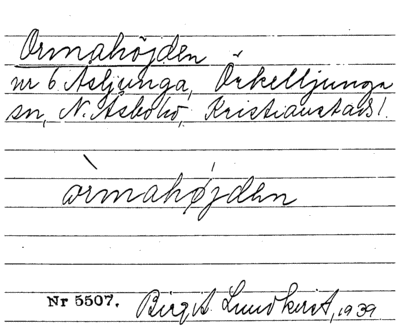 Ormahöjden
nr 6 Åsljunga, Örkelljunga
sn, N. Åsbohd, Kristianstads l.
òrmahøjden
Nr 5507. Birgit Lundkvist, 1939